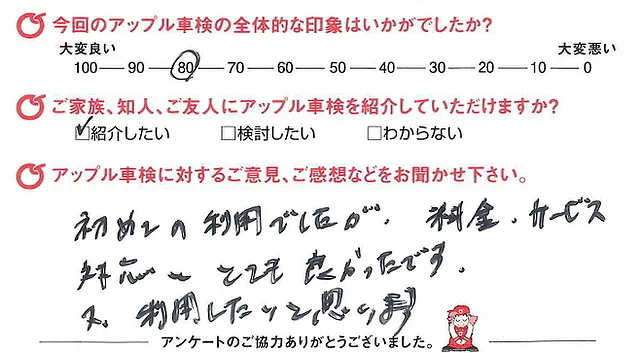 今回のアップル車検の全体的な印象はいかがでしたか?
大変良い 大変悪い
100 90 80 70 60 50 40 30 20 10 0
ご家族、知人、ご友人にアップル車検を紹介していただけますか?
☑紹介したい □検討したい □わからない
アップル車検に対するご意見、ご感想などをお聞かせ下さい。
初めての利用でしたが、料金、サービス
対応ととても良かったです。
又、利用したいと思います
アンケートのご協力ありがとうございました。